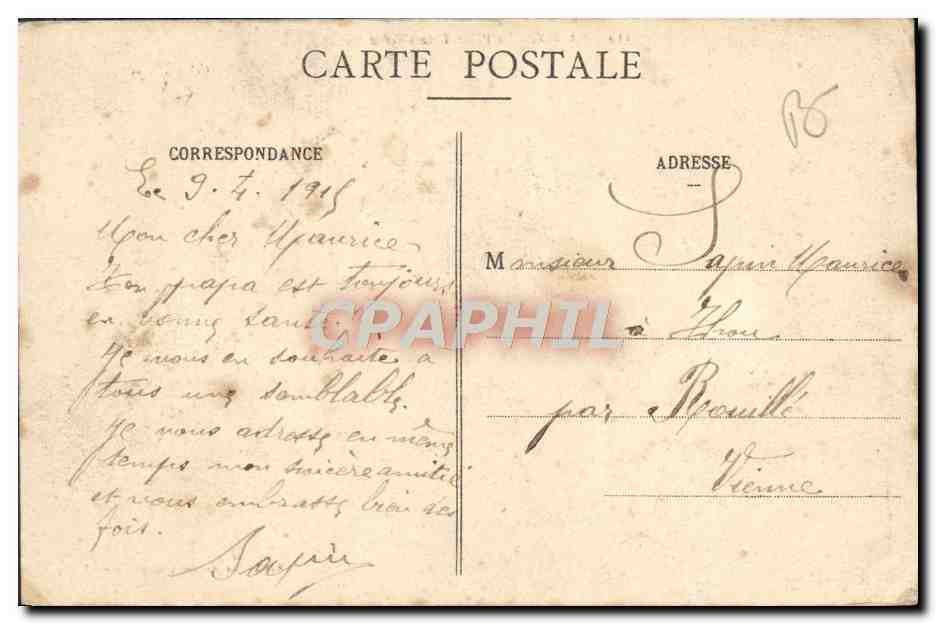 CARTE POSTALE
CORRESPONDANCE
Le 9.4.1915
Mon cher Maurice
Ton papa est toujours
en bonne santé.
Je vous en souhaite a
tous une semblable.
Je vous adresse en même
temps mon sincère amitié
et vous embrasse bien des
fois.
Sapin
ADRESSE
Monsieur Sapin Maurice
à Thou
par Rouillé
Vienne
CPAPHIL